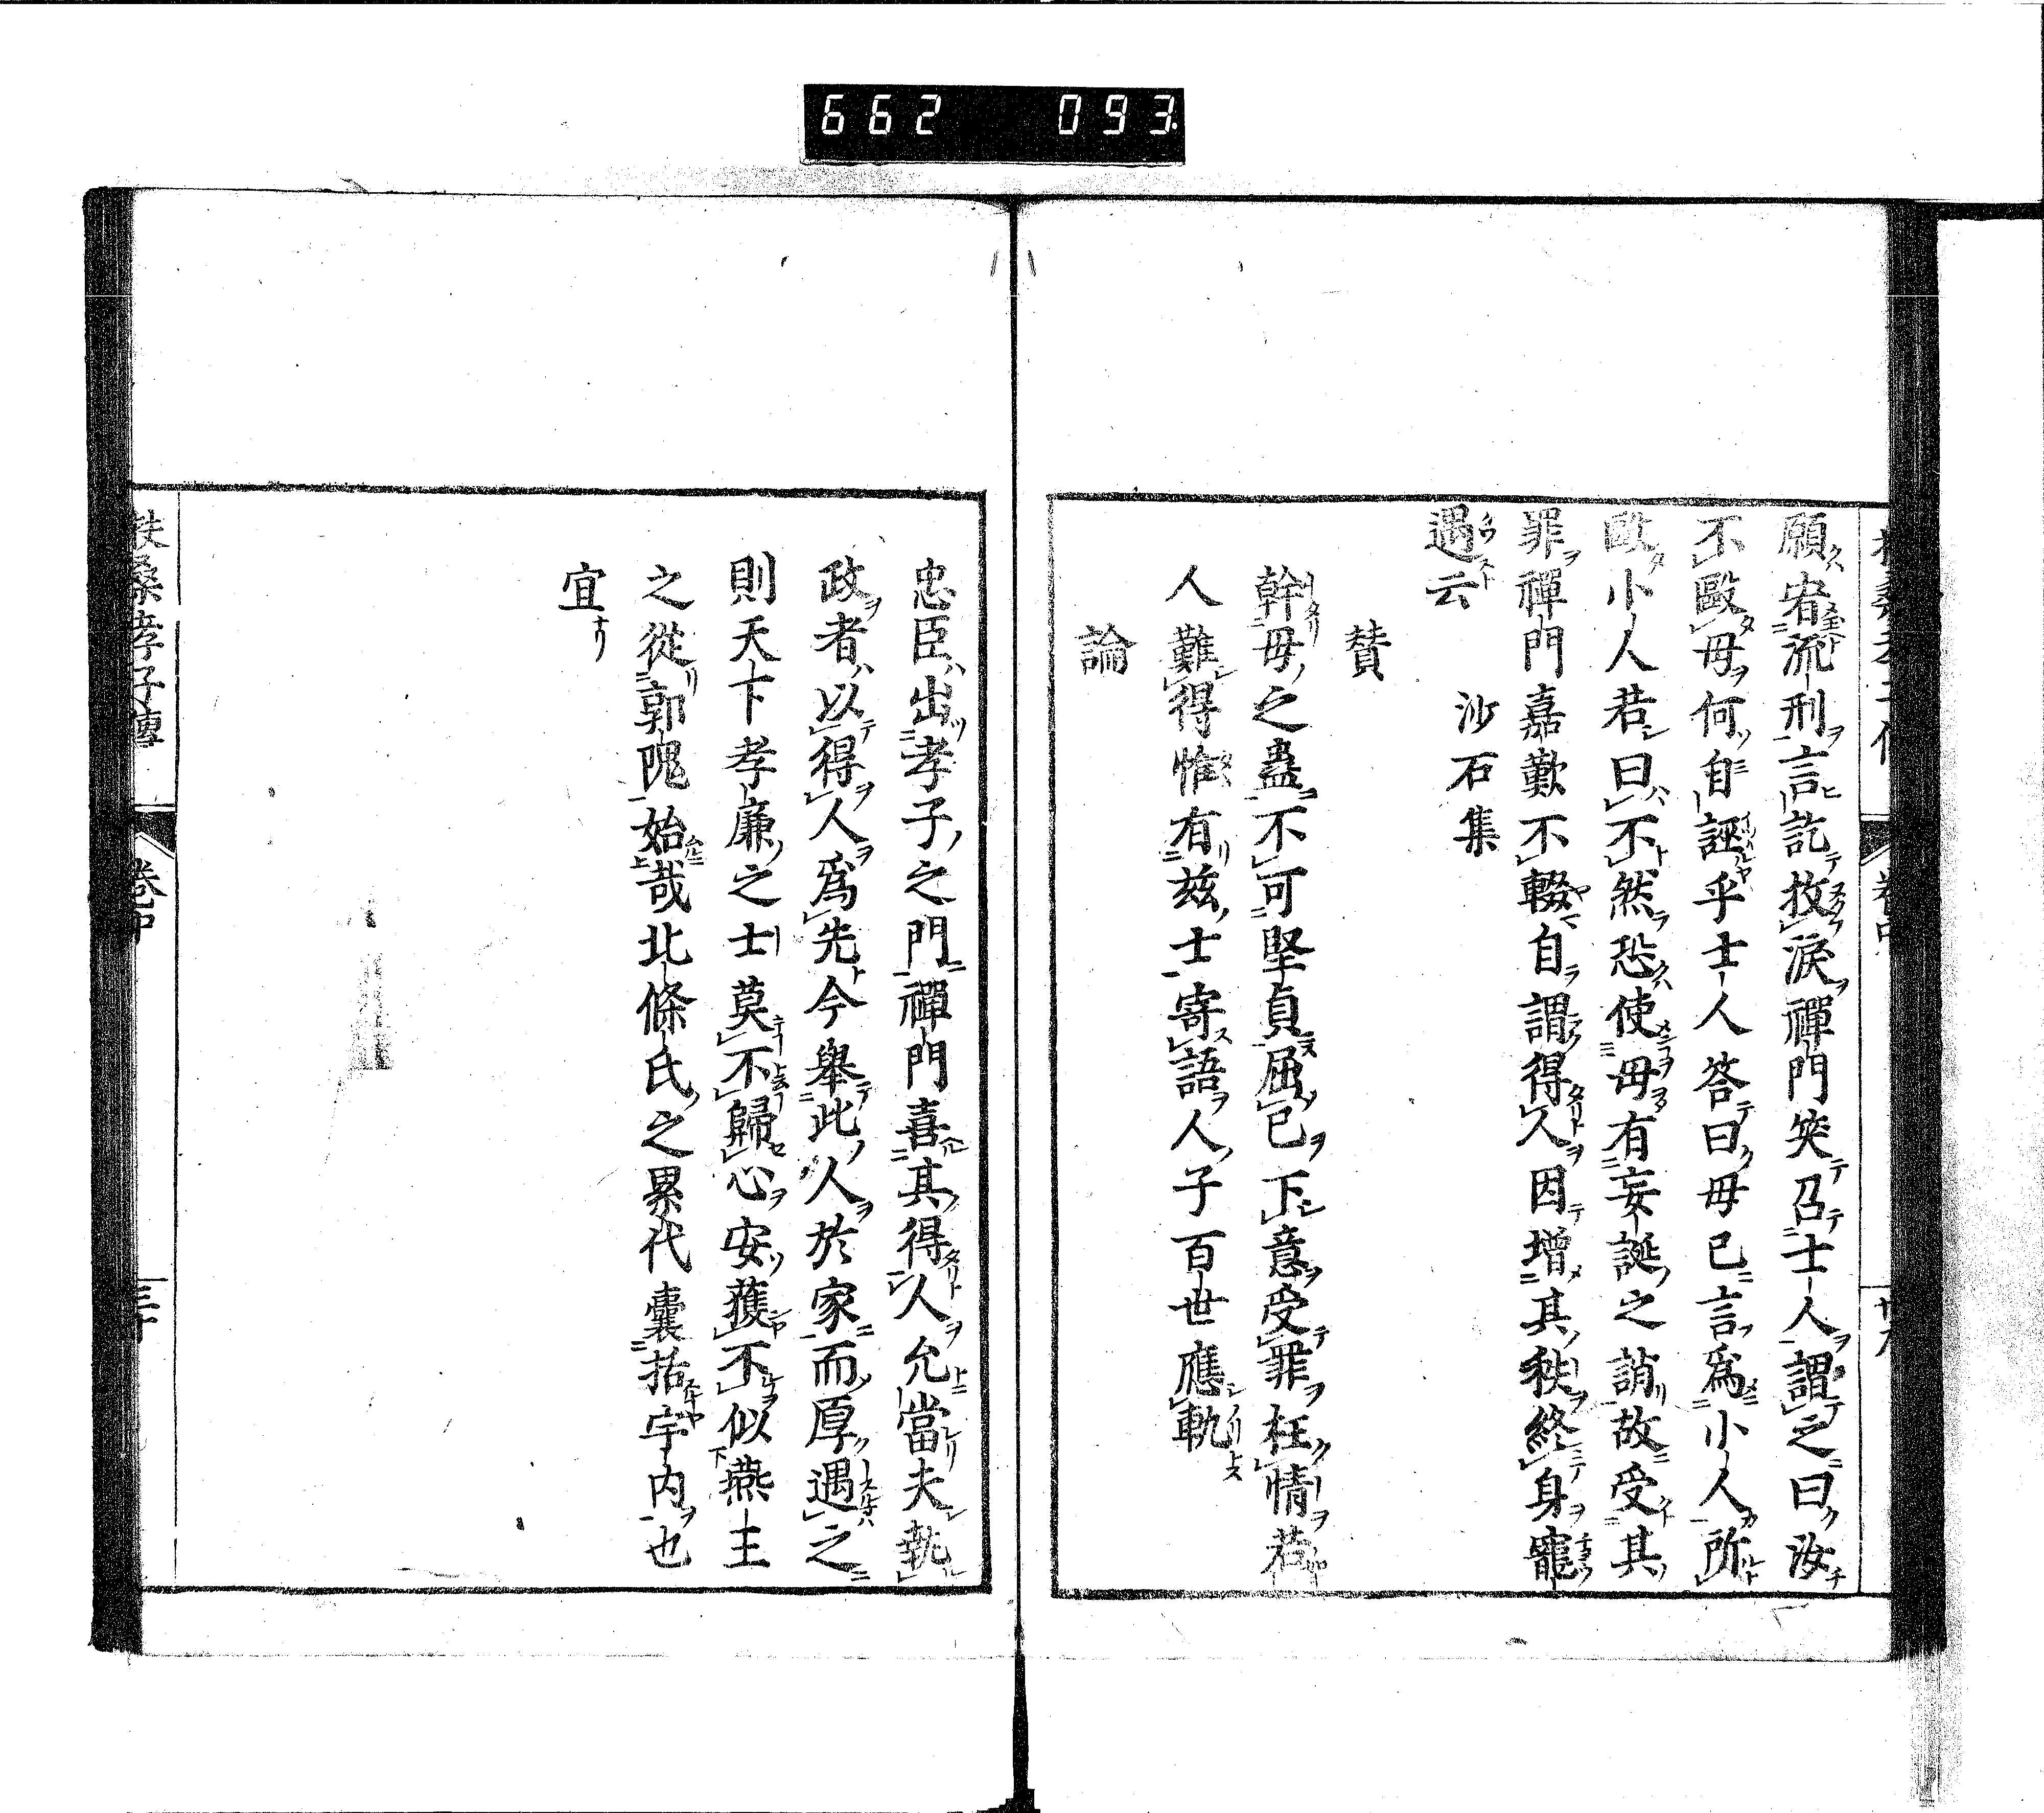 662 093
願宥流刑言訖抆淚禪門笑召士人謂之曰汝
不毆母何自誣乎士人答曰母已言爲小人所
毆小人若曰不然恐使母有妄誕之誚故受其
罪禪門嘉歎不輟自謂得人因增其秩終身寵
遇云　沙石集
贊
幹母之蠱不可堅貞屈已下意受罪枉情若
人難得惟有茲士寄語人子百世應軌
論
忠臣出孝子之門禪門喜其得人允當夫執
政者以得人爲先今舉此人於家而厚遇之
則天下孝廉之士莫不歸心安獲不似燕主
之從郭隗始哉北條氏之累代囊括宇内也
宜
扶桑孝子傳　卷中　三十